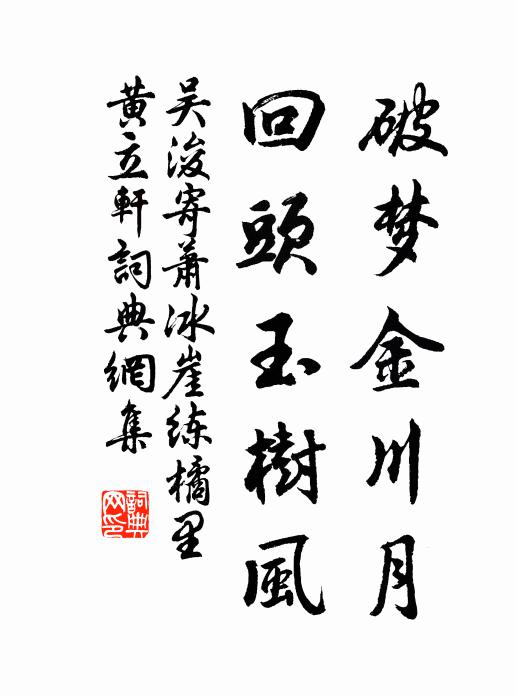 破梦金川月
回頭玉樹風
吴浚寄蕭冰崖练橘里
黄立軒詞典網集
詞典网印